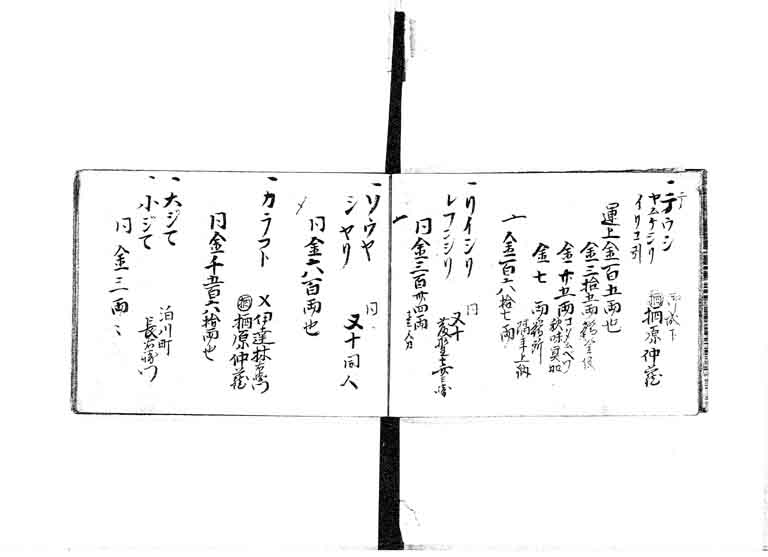 一テウシ
ヤムケシリ
イリコ引
御城下
栖原仲蔵
運上金百五両也
金三拾五両
金廿五両
金七両
一金二百六拾七両
一リイシリ 同
レフンシリ 又十
同金三百廿四両
一ソウヤ 同
シヤリ 又十同人
同金六百両也
一カラフト 伊達林右衛門
栖原仲蔵
同金千五百六拾両也
一大ジて
一小ジて 泊川町
長右衛門
同金三両